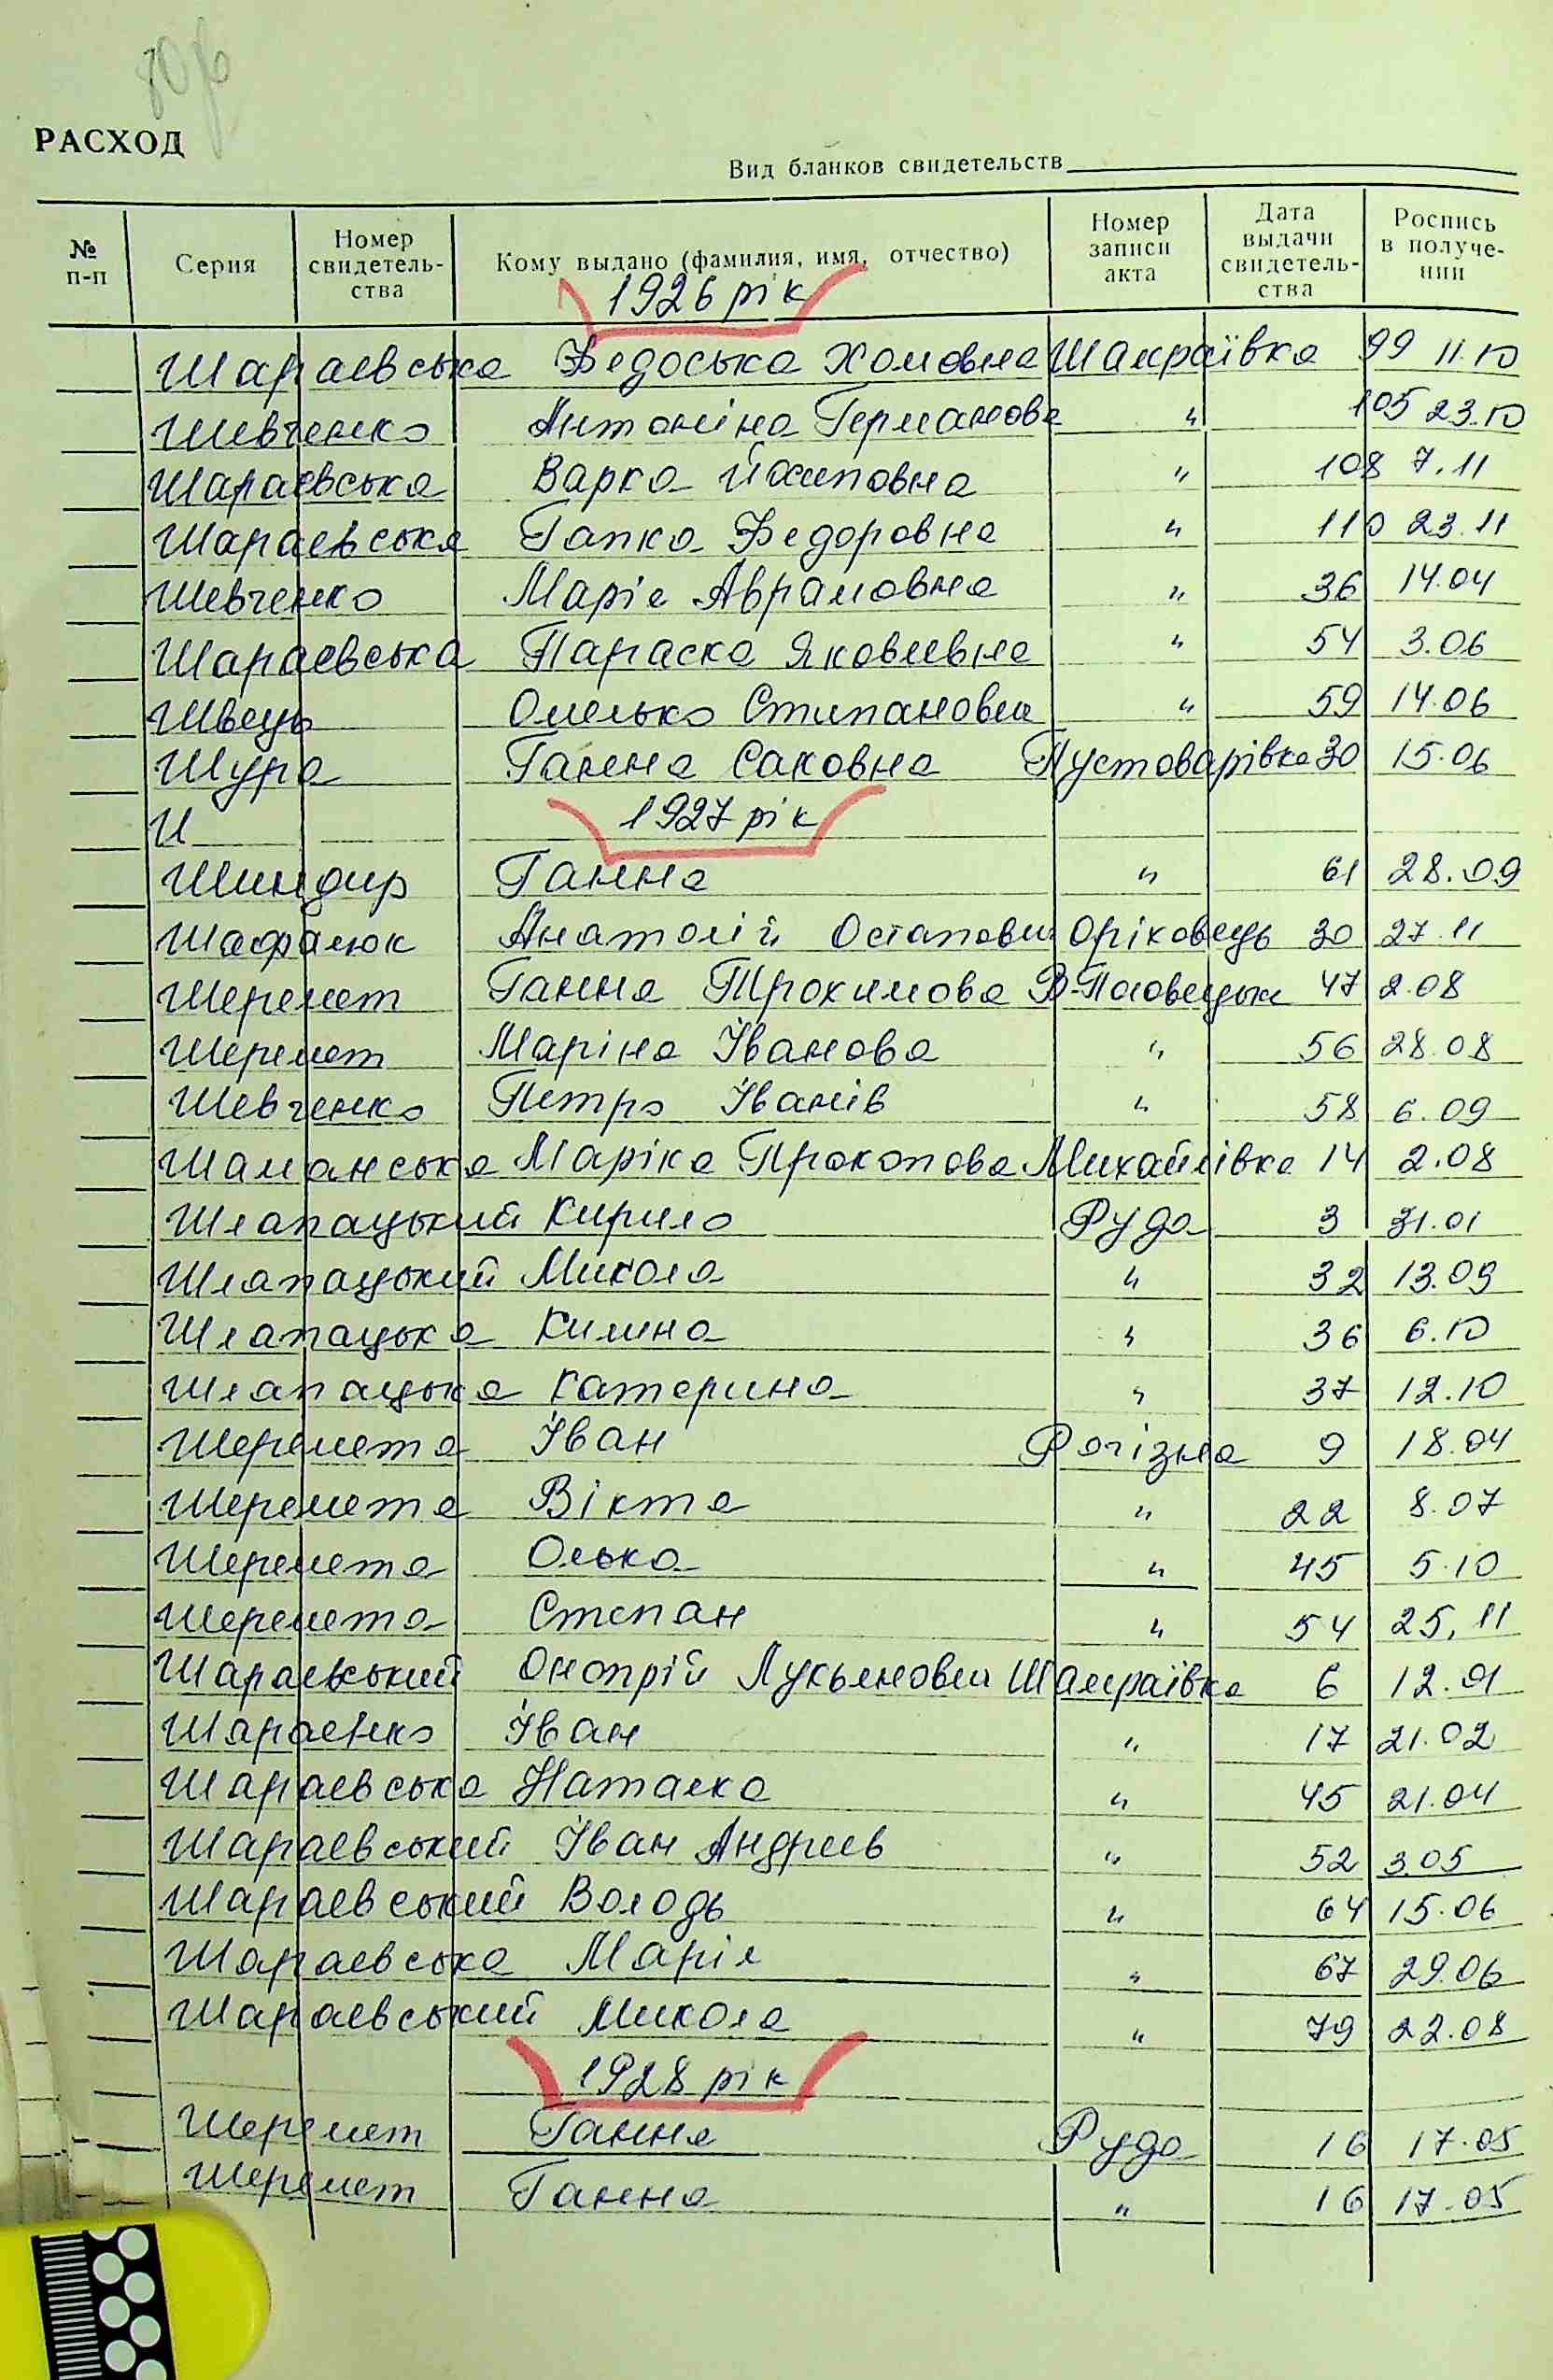 РАСХОД
Вид бланков свидетельств
№ п-п Серия Номер свидетель-ства Кому выдано (фамилия, имя, отчество) Номер записи акта Дата выдачи свидетель-ства Роспись в получе-нии
1926 рік
Шараевська Федоська Хомовна Шамраївка 99 11.10
Шевченко Антоніна Германова " 105 23.10
Шараевська Варка Йосиповна " 108 7.11
Шараевська Гапка Федоровна " 110 23.11
Шевченко Марія Аврамовна " 36 14.04
Шараевська Параска Яковлевна " 54 3.06
Швець Омелько Степанович " 59 14.06
Шура Ганна Саковна Пустоварівка 30 15.06
1927 рік
Ш
Шиндир Ганна " 61 28.09
Шафалюк Анатолій Остапович Оріховець 30 27.11
Шеремет Ганна Трохимова В-Половецьке 47 2.08
Шеремет Маріна Іванова " 56 28.08
Шевченко Петро Іванів " 58 6.09
Шаманська Маріка Прокопова Михайлівка 14 2.08
Шлапацький Кирило Руда 3 31.01
Шлапацький Микола " 32 13.09
Шлапацька Килина " 36 6.10
Шлапацька Катерина " 37 12.10
Шеремета Іван Рогізна 9 18.04
Шеремета Вікта " 22 8.07
Шеремета Олька " 45 5.10
Шеремета Степан " 54 25.11
Шараевський Онопрій Лукьянович Шамраївка 6 12.01
Шараенко Іван " 17 21.02
Шараевська Наталка " 45 21.04
Шараевський Іван Андреев " 52 3.05
Шараевський Володь " 64 15.06
Шараевська Марія " 67 29.06
Шараевський Микола " 79 22.08
1928 рік
Шеремет Ганна Руда 16 17.05
Шеремет Ганна " 16 17.05